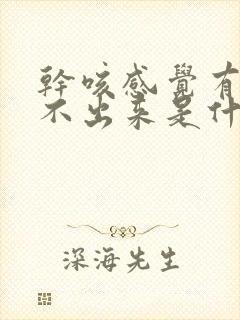 幹咳感覺有
不出來是什
深海先生